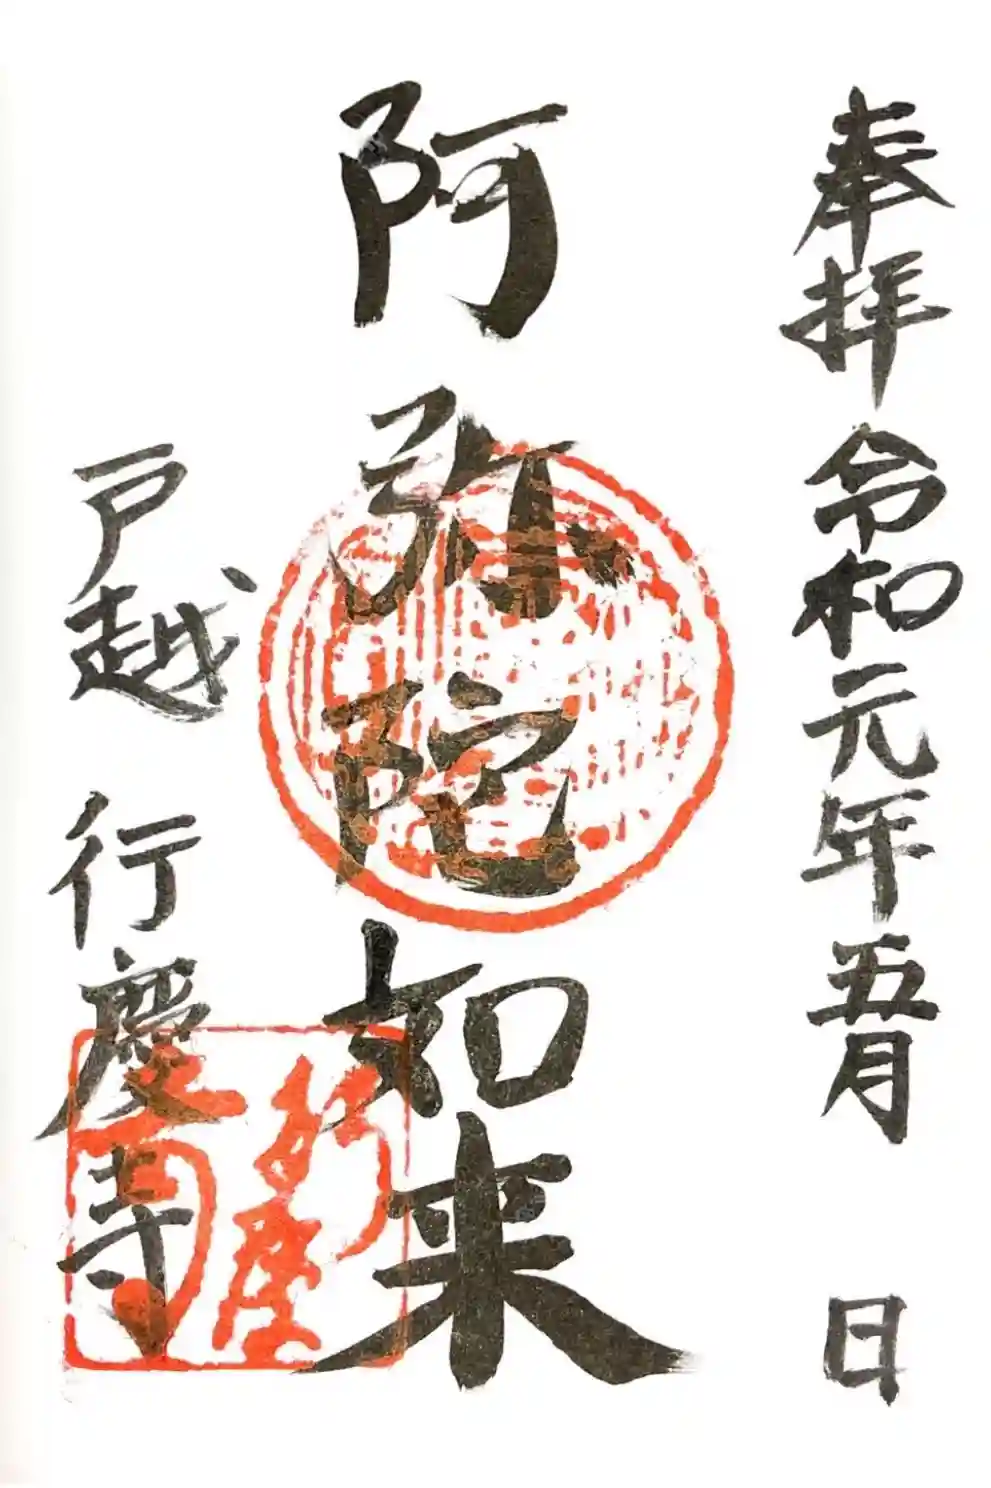 奉拝 令和元年五月 日
阿弥陀如来
戸越 行慶寺
行慶寺